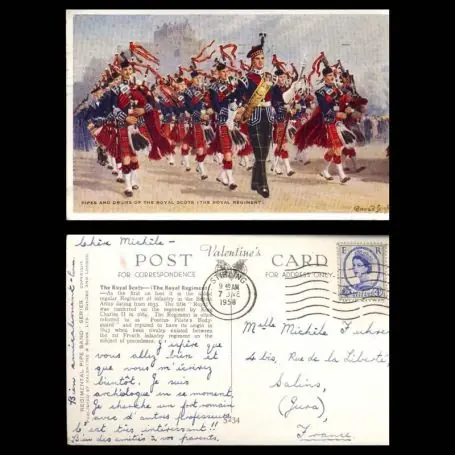 PIPES AND DRUMS OF THE ROYAL SCOTS (THE ROYAL REGIMENT)
Chère Michèle -
POST Valentine's CARD
FOR CORRESPONDENCE
FOR ADDRESS ONLY
The Royal Scots—(The Royal Regiment)
—As the first on foot it is the oldest
regular Regiment of infantry in the British
Army dating from 1633. The title "Royal"
was conferred on the regiment by King
Charles II in 1684. The Regiment is often
referred to as Pontius Pilate's Body-
guard and reputed to have its origin in
1643 when keen rivalry existed between
the 1st French Infantry regiment on the
subject of precedence.
J'espère que
vous allez bien et
que vous m'écrivez
bientôt. Je suis
archéologue en ce moment.
Je cherche un fort romain
avec d'autres professeurs.
C'est très intéressant!!
Bien des amitiés à vos parents.
Bien amicalement
REGIMENTAL PIPE BAND SERIES
COPYRIGHT
VALENTINE & SONS LTD. DUNDEE AND LONDON
S434
STIRLING
9 15 AM
7 JNE
1958
Mlle Michèle
de bis, Rue de la Liberté
Salins
(Jura)
France